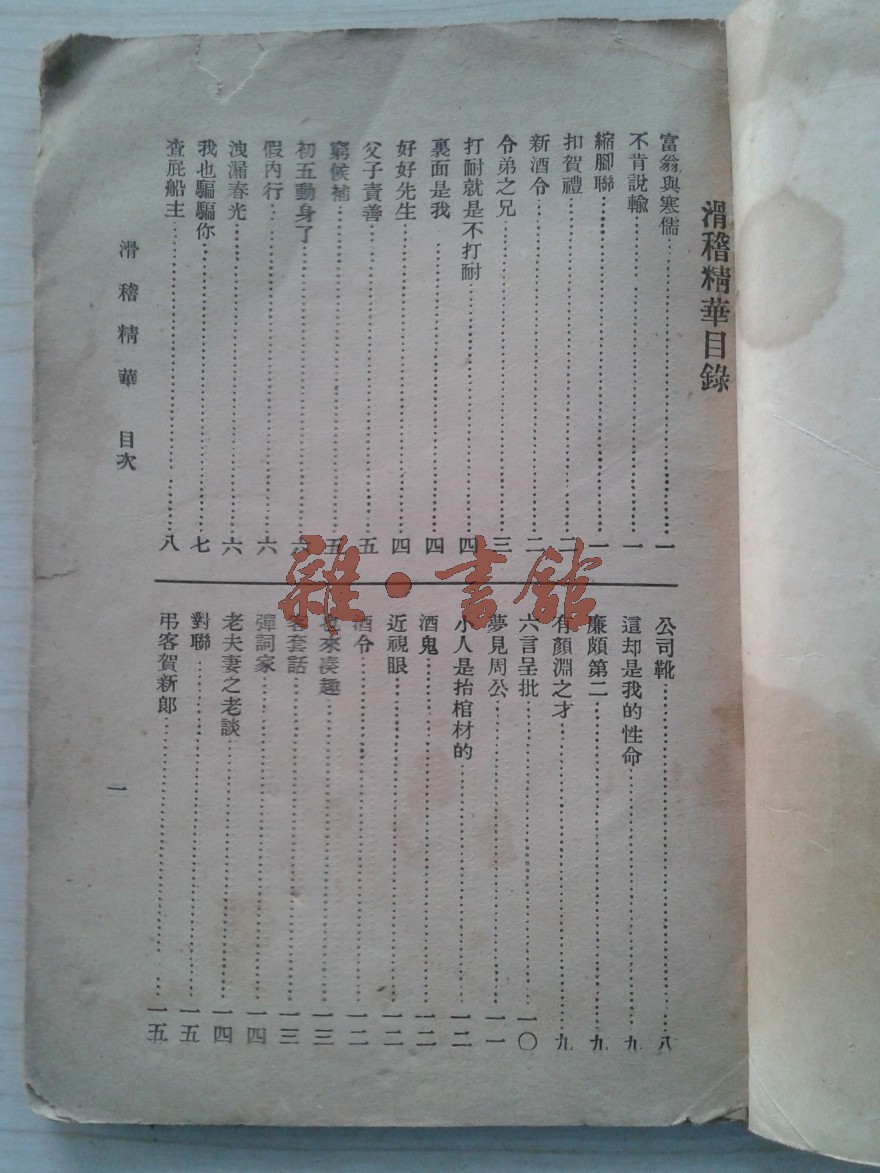 滑稽精華目錄
富翁與寒儒……一
不肯說輸……一
縮腳聯……一
扣賀禮……二
新酒令……二
令弟之兄……三
打耐就是不打耐……四
裏面是我……四
好好先生……四
父子責善……五
窮候補……五
初五動身了……六
假內行……六
洩漏春光……六
我也騙騙你……七
查屁船主……八
公司靴……八
這却是我的性命……九
廉頗第二……九
有顏淵之才……九
六言呈批……一〇
夢見周公……一一
小人是抬棺材的……一二
酒鬼……一二
近視眼……一二
酒令……一二
來湊趣……一三
客套話……一三
彈詞家……一四
老夫妻之老談……一四
對聯……一五
弔客賀新郎……一五
滑稽精華 目次
一
雜·書館